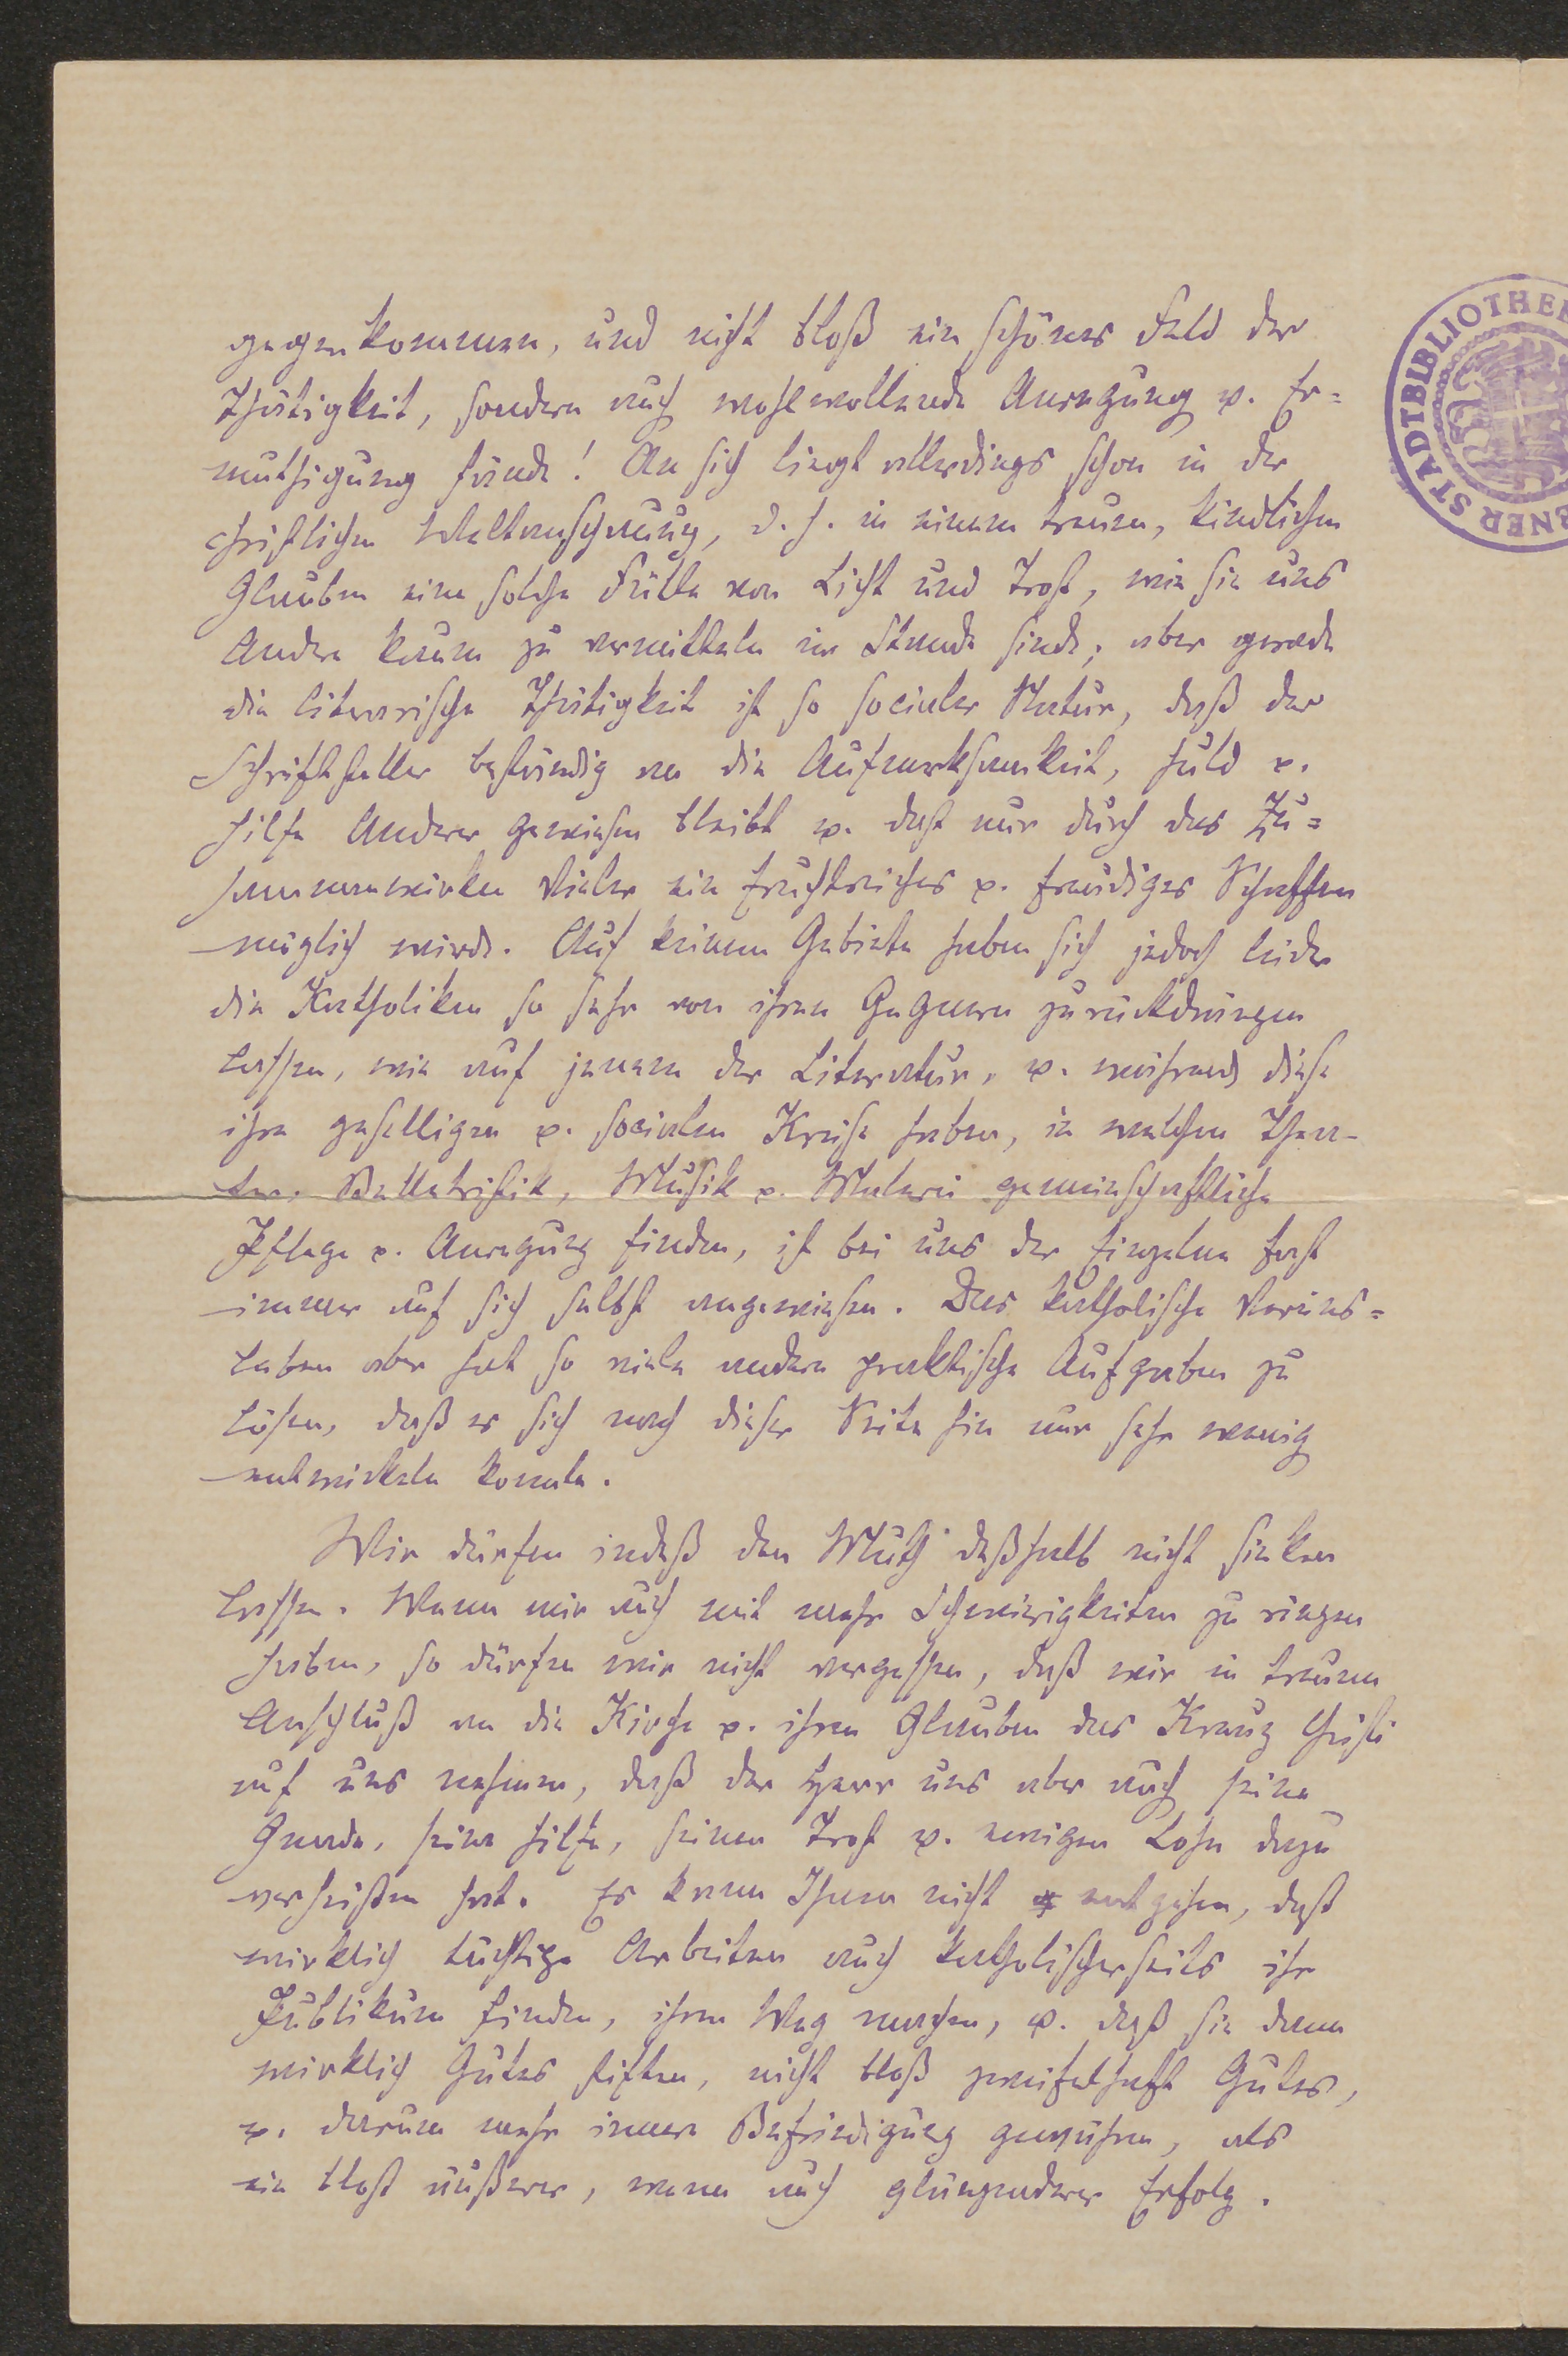 gegenkommen, und nicht bloß ein schönes Feld der
Thätigkeit, sondern auch wohlwollende Anregung u. Er=
muthigung fände! An sich liegt allerdings schon in der
christlichen Weltanschauung, d. h. in einem treuen, kindlichen
Glauben eine solche Fülle von Licht und Trost, wie sie uns
Andere kaum zu vermitteln im Stande sind; aber gerade
die literarische Thätigkeit ist so socialer Natur, daß der
Schriftsteller beständig an die Aufmerksamkeit, Huld u.
Hilfe Anderer gewiesen bleibt u. daß nur durch das Zu=
sammenwirken Vieler ein fruchtreiches u. freudiges Schaffen
möglich wird. Auf keinem Gebiete haben sich jedoch leider
die Katholiken so sehr von ihren Gegnern zurückdrängen
lassen, wie auf jenem der Literatur, u. während diese
ihre geselligen u. socialen Kreise haben, in welchen Thea-
ter, Belletristik, Musik u. Malerei gemeinschaftliche
Pflege u. Anregung finden, ist bei uns der Einzelne fast
immer auf sich selbst angewiesen. Das katholische Vereins=
leben aber hat so viele andere praktische Aufgaben zu
lösen, daß es sich nach dieser Seite hin nur sehr wenig
entwickeln konnte.
Wir dürfen indeß den Muth deßhalb nicht sinken
lassen. Wenn wir auch mit mehr Schwierigkeiten zu ringen
haben, so dürfen wir nicht vergessen, daß wir in treuem
Anschluß an die Kirche u. ihren Glauben das Kreuz Christi
auf uns nehmen, daß der Herr uns aber auch seine
Gnade, seine Hilfe, seinen Trost u. ewigen Lohn dazu
verheißen hat. Es kann Ihnen nicht entgehen, daß
wirklich tüchtige Arbeiten auch katholischerseits ihr
Publikum finden, ihren Weg machen, u. daß sie dann
wirklich Gutes stiften, nicht bloß zweifelhaft Gutes,
u. darum mehr innere Befriedigung gewähren, als
ein bloß äußerer, wenn auch glänzenderer Erfolg.
STADTBIBLIOTHE